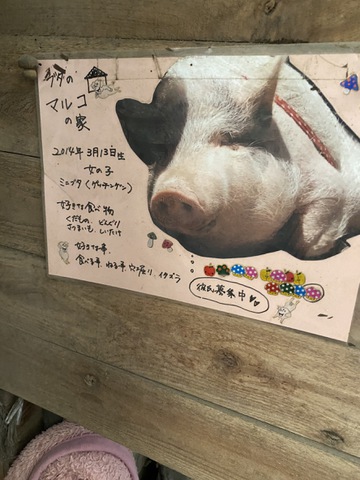 ブタの
マルコ
の家
2014年 3月13日生
女の子
ミニブタ(ゲッチンゲン)
好きな食べ物
くだもの、どんぐり
さつまいも、しいたけ
好きな事
食べる事、ねる事、穴掘り、イタズラ
彼氏募集中